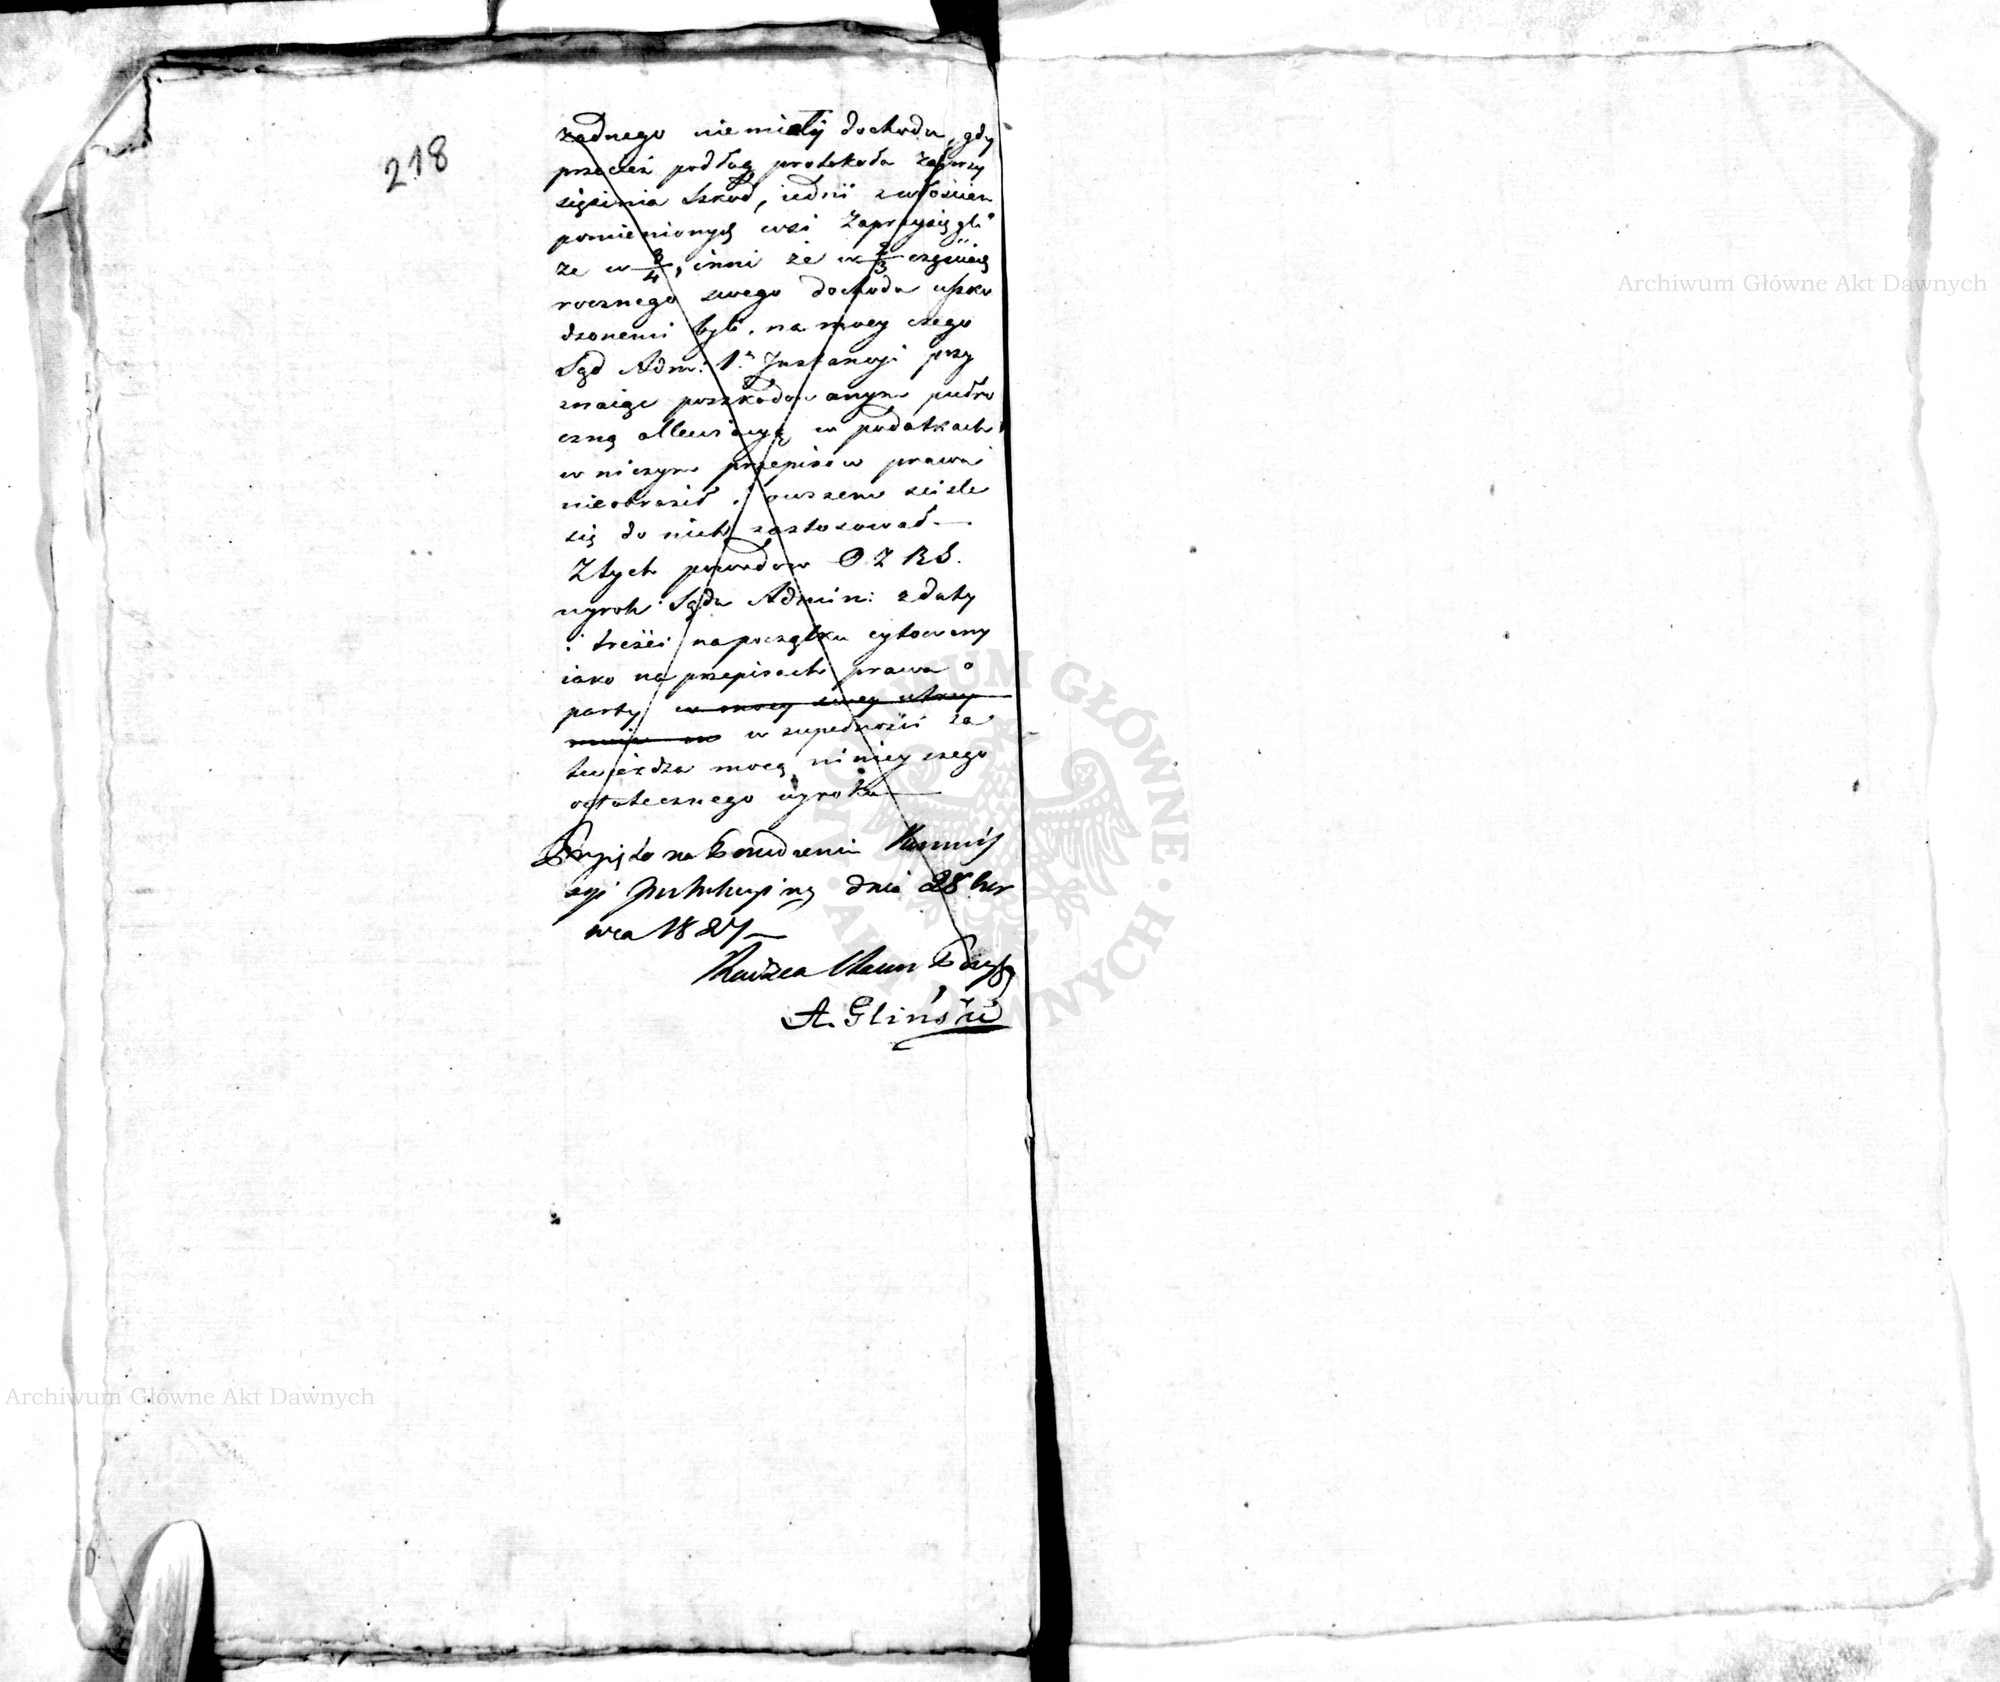 218
żadnego nie miały dochodu, gdy
przecież podług protokołu zaprzy
siężenia szkod, iedni z włościan
pomienionych wsi zaprzysięgli
że w 3/4, inni że w 2/3 częściach
rocznego swego dochodu uszko
dzonemi byli, na mocy czego
Sąd Adm: 1ey Instancyi przy
znaiąc poszkodowanym
czną allewiacyą w podatkach
w niczym przepisów prawa
nieobraził i owszem ściśle
się do nich zastosował —
Z tych powodów O. Z R S.
wyrok Sądu Admin: z daty
i treści na początku cytowany
iako na przepisach prawa o
party w mocy swey utrzy
muie on w zupełności za
twierdza mocą ninieyszego
ostatecznego wyroku —
Przyięto na Posiedzeniu
dnia 28 Czer
wca 1827 —
Radzca Stanu
A. Gliński
Archiwum Główne Akt Dawnych
Archiwum Główne Akt Dawnych
ARCHIWUM GŁÓWNE AKT DAWNYCH